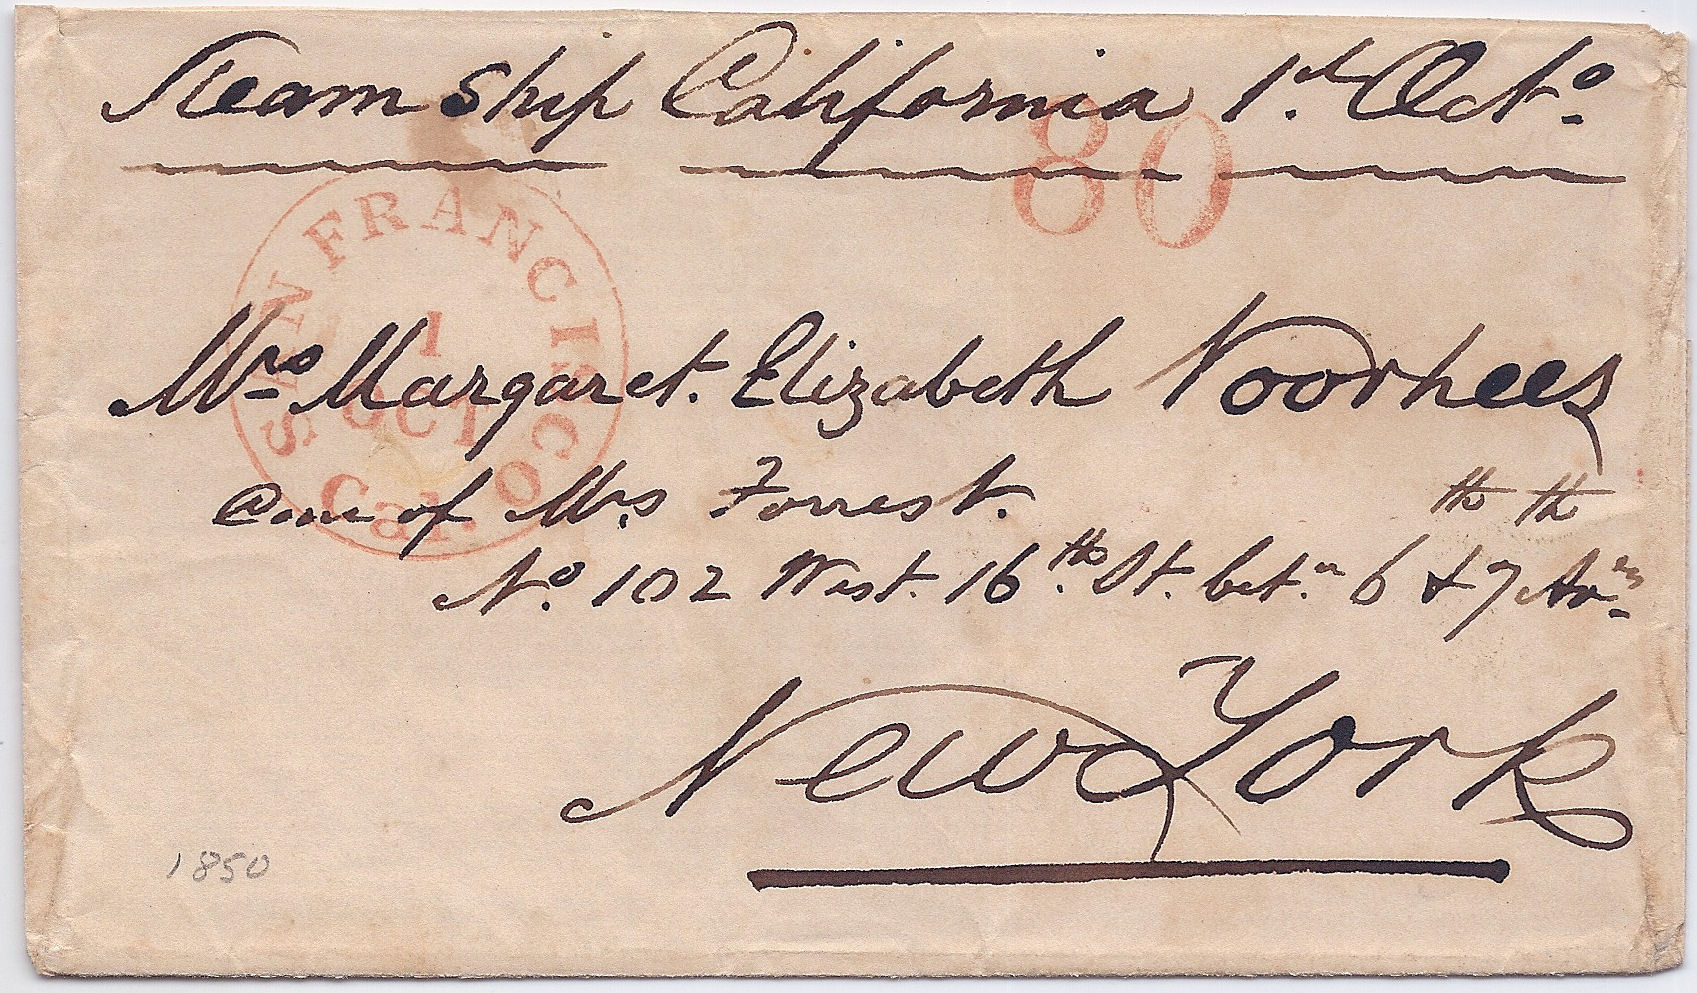 Steam Ship California 1st Octo
80
SAN FRANCISCO Cal.
1
OCT
Mrs Margaret. Elizabeth Voorhees
Care of Mrs Forrest.
No. 102 West. 16th. St. betn 6th & 7th Avs
New York
1850